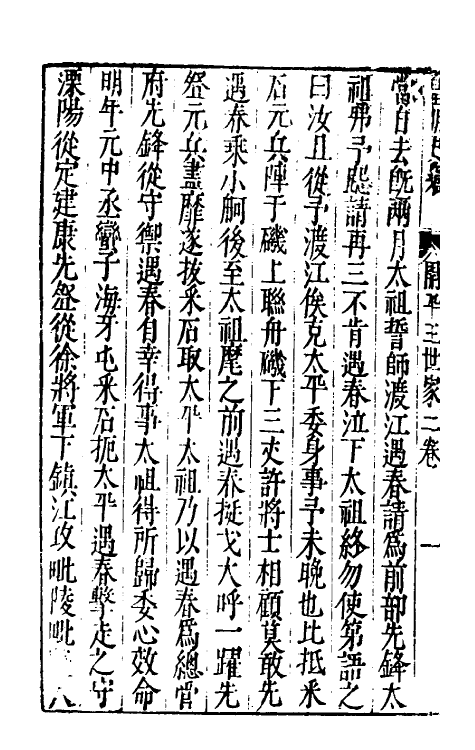 當自去既兩月太祖誓師渡江遇春請為前部先鋒太
祖弗予懇請再三不肯遇春泣下太祖終勿使第語之
曰汝且從予渡江俟克太平委身事予未晚也比抵采
石元兵陣于磯上聯舟磯下三丈許將士相顧莫敢先
遇春乘小舸後至太祖麾之前遇春挺戈大呼一躍先
登元兵盡靡遂拔采石取太平太祖乃以遇春為總管
府先鋒從守禦遇春自幸得事太祖得所歸委心效命
明年元中丞蠻子海牙屯采石扼太平遇春擊走之守
溧陽從定建康先登從徐將軍下鎮江攻毗陵毗
開平王世家二卷
一